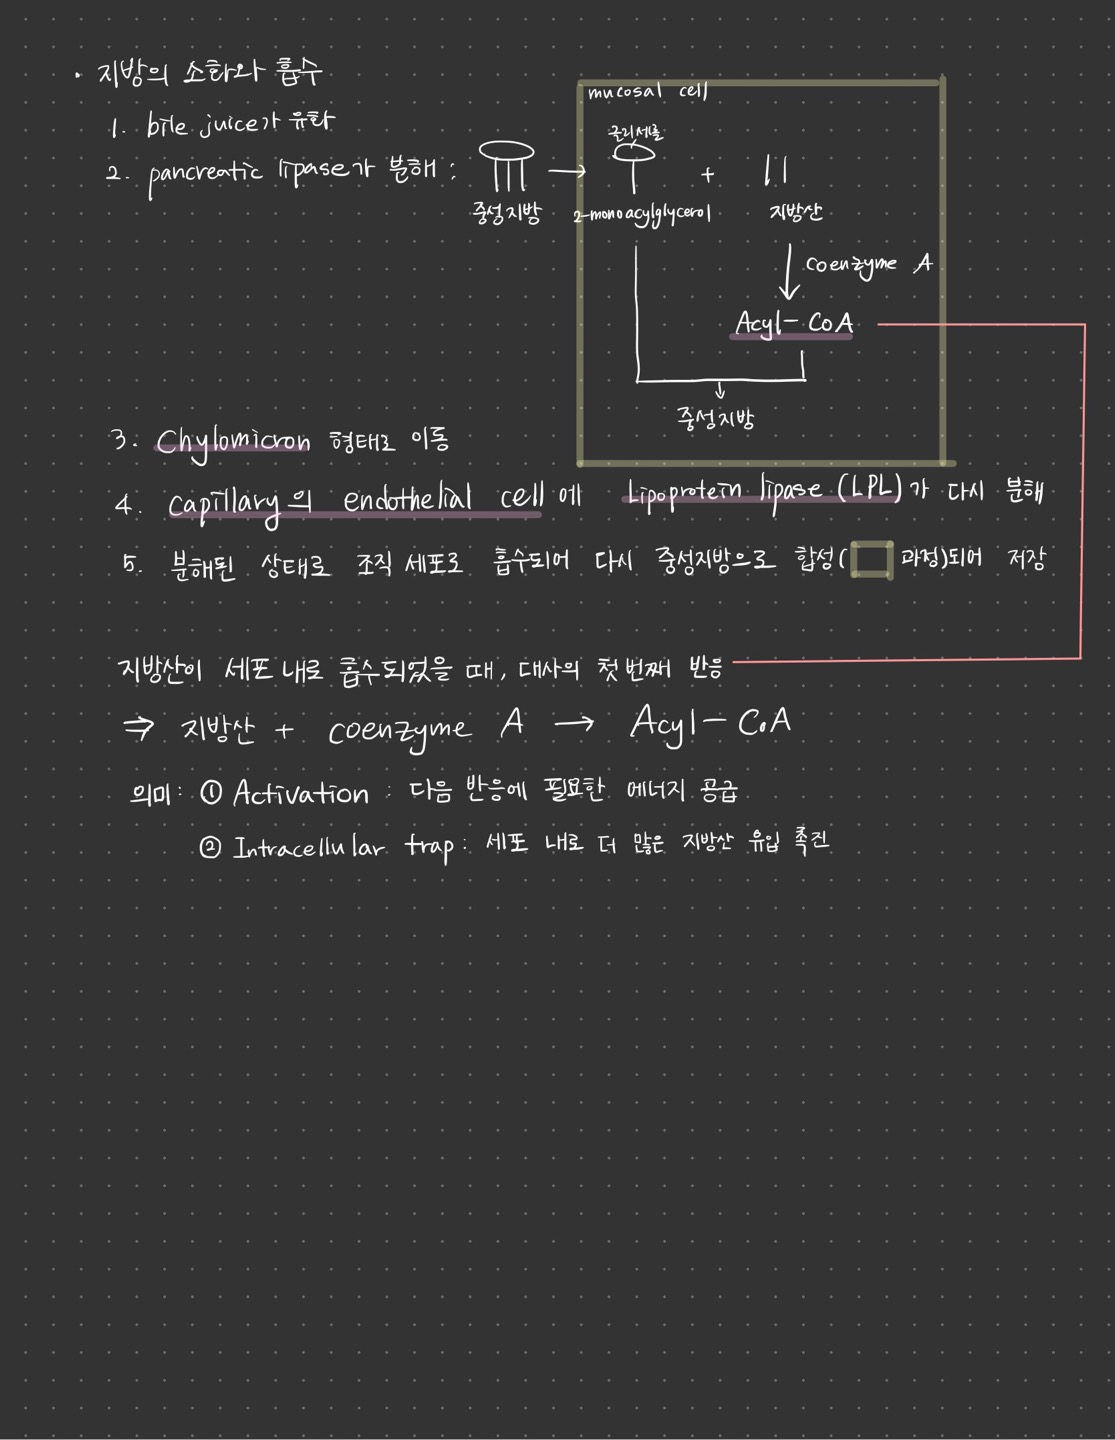 · 지방의 소화와 흡수
1. bile juice가 유화
2. pancreatic lipase가 분해 :
중성지방
→
mucosal cell
글리세롤
2-monoacylglycerol
+
지방산
coenzyme A
Acyl-CoA
중성지방
3. Chylomicron 형태로 이동
4. capillary의 endothelial cell에 Lipoprotein lipase (LPL)가 다시 분해
5. 분해된 상태로 조직 세포로 흡수되어 다시 중성지방으로 합성(□ 과정)되어 저장
지방산이 세포 내로 흡수되었을 때, 대사의 첫 번째 반응
⇒ 지방산 + coenzyme A → Acyl-CoA
의미: ① Activation : 다음 반응에 필요한 에너지 공급
② Intracellular trap: 세포 내로 더 많은 지방산 유입 촉진